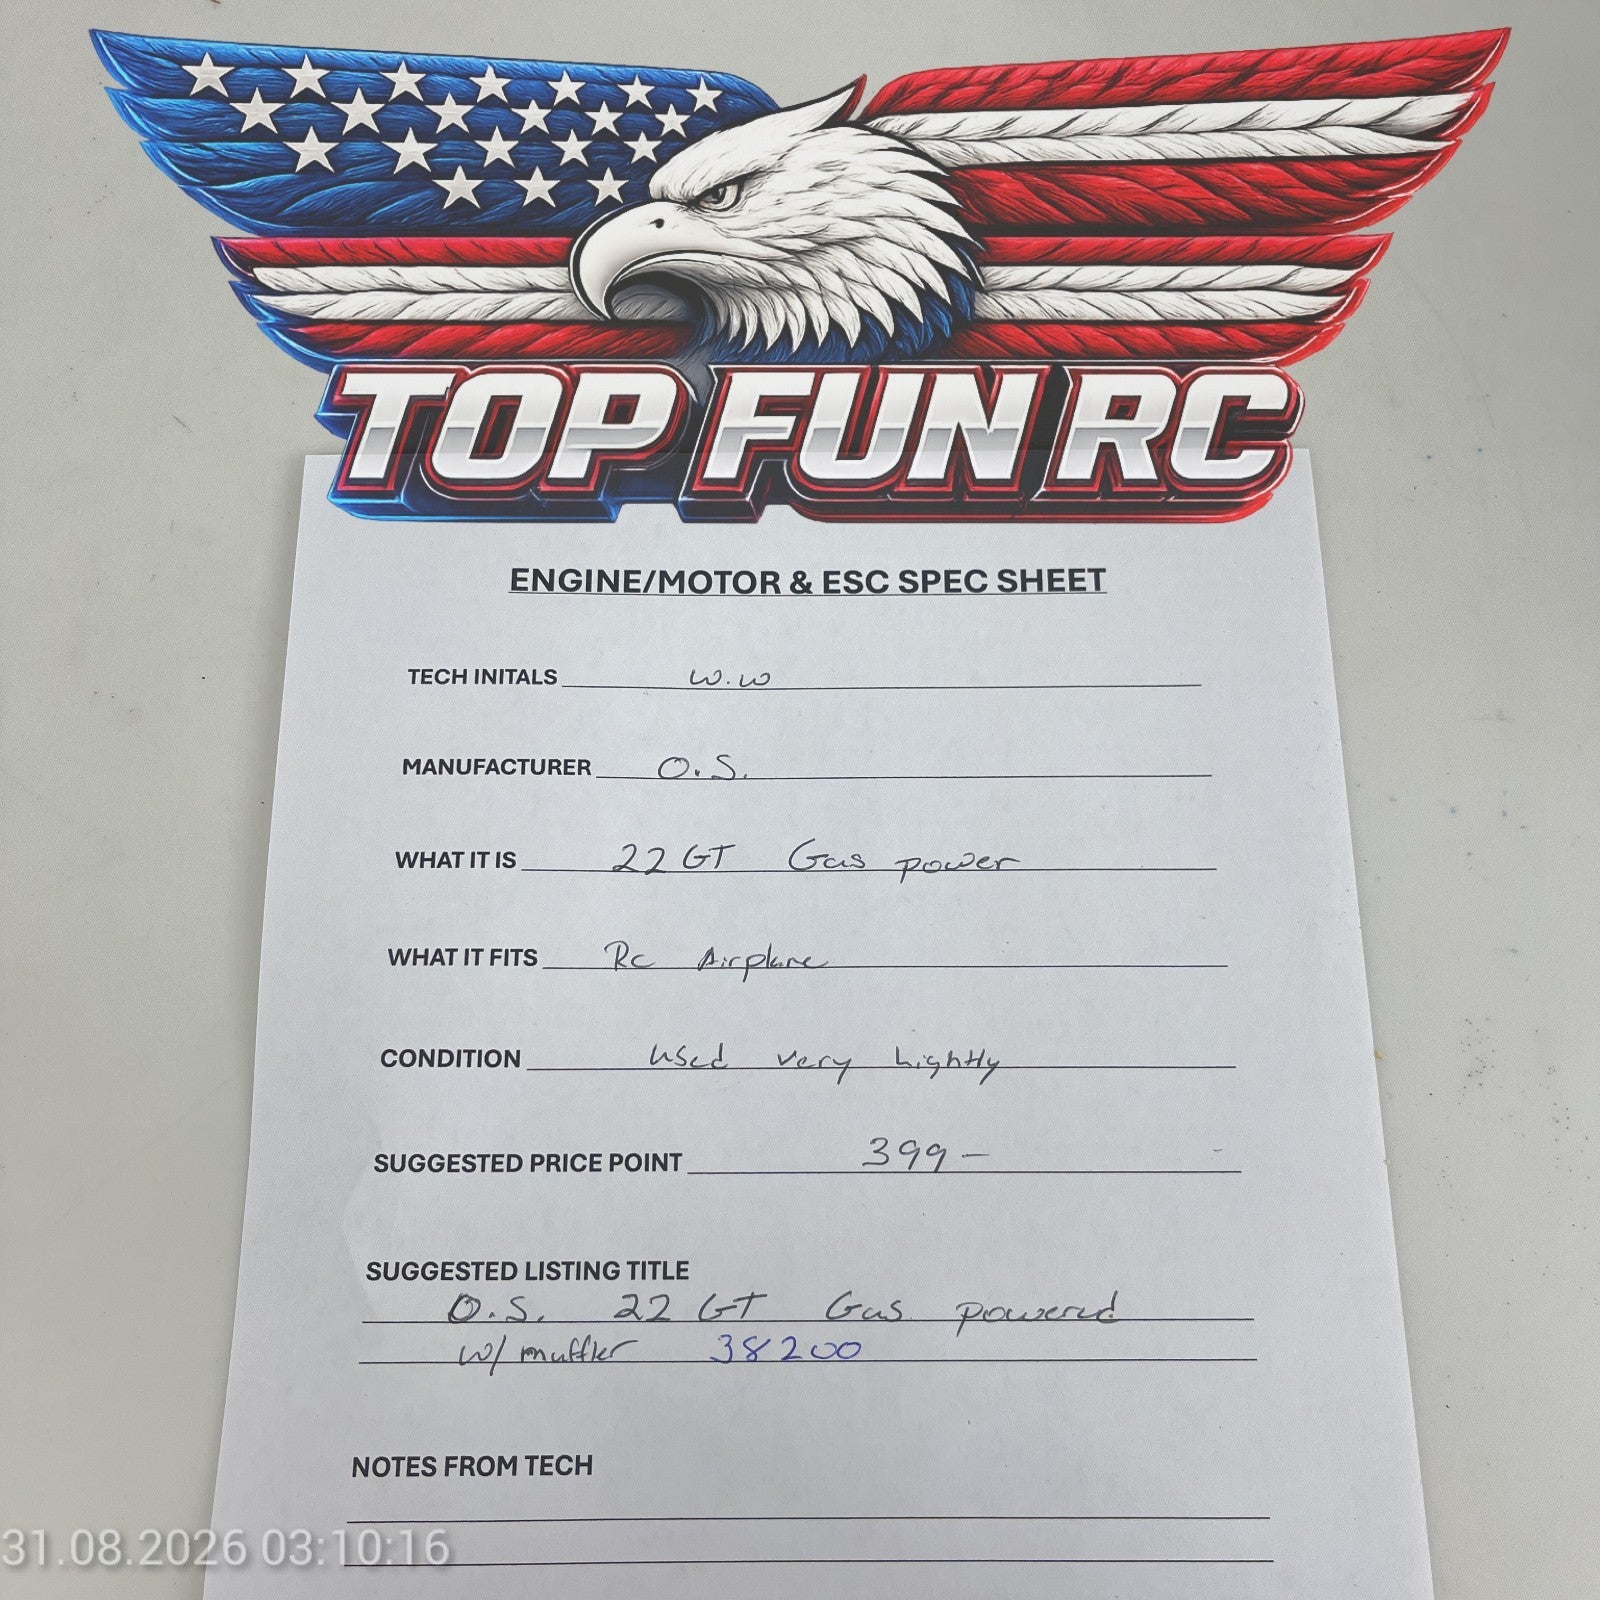 TOP FUN RC
ENGINE/MOTOR & ESC SPEC SHEET
TECH INITALS W.W
MANUFACTURER O.S.
WHAT IT IS 22 GT Gas power
WHAT IT FITS Rc Airplane
CONDITION Used very Lightly
SUGGESTED PRICE POINT 399-
SUGGESTED LISTING TITLE
O.S. 22 GT Gas powered
w/ muffler 38200
NOTES FROM TECH
31.08.2026 03:10:16